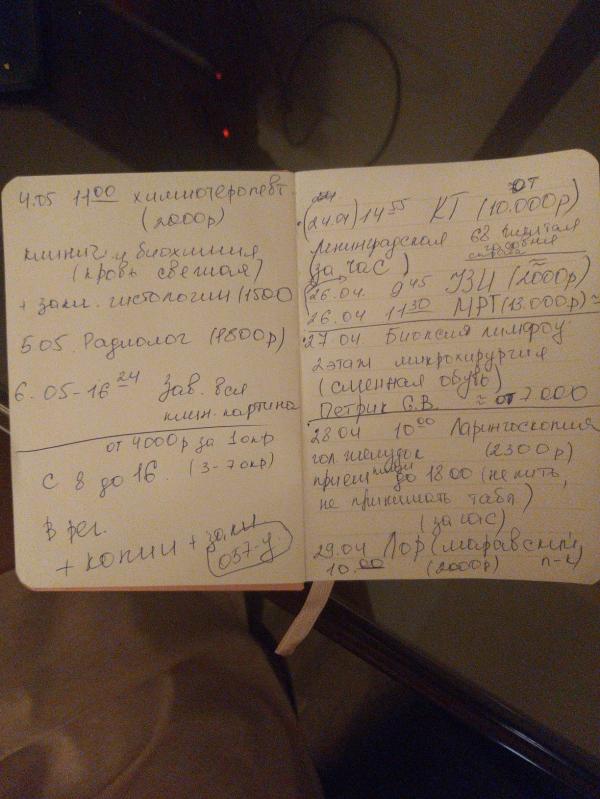 4.05 11 00 химиотерапевт
(2000р)
клинич. и биохимия
(кровь свежая)
+ закл. гистологии (1500
5 05. Радиолог (1800р)
6.05-16 24 Зав. вся
клин. картина
от 4000р за 1 окр
(3-7 окр)
С 8 до 16.
В рег.
+ копии + закл
057-у
от
(24.04) 14 55 КТ (10.000р)
Ленинградская 68
(за час)
26.04. 9 45 УЗИ (≈2000р)
26.04 11 30 МРТ (13.000р)≈
27.04 Биопсия лимфоу
2 этаж микрохирургия
(сменная обувь)
Петрик С.В. ≈ от 7000
28.04 10 00 Ларингоскопия
гол. желудок (2300р)
прием пищи до 18 00 (не пить,
не принимать табл)
(за час)
29.04 Лор (маравский
10.00 (2000р) п-к)